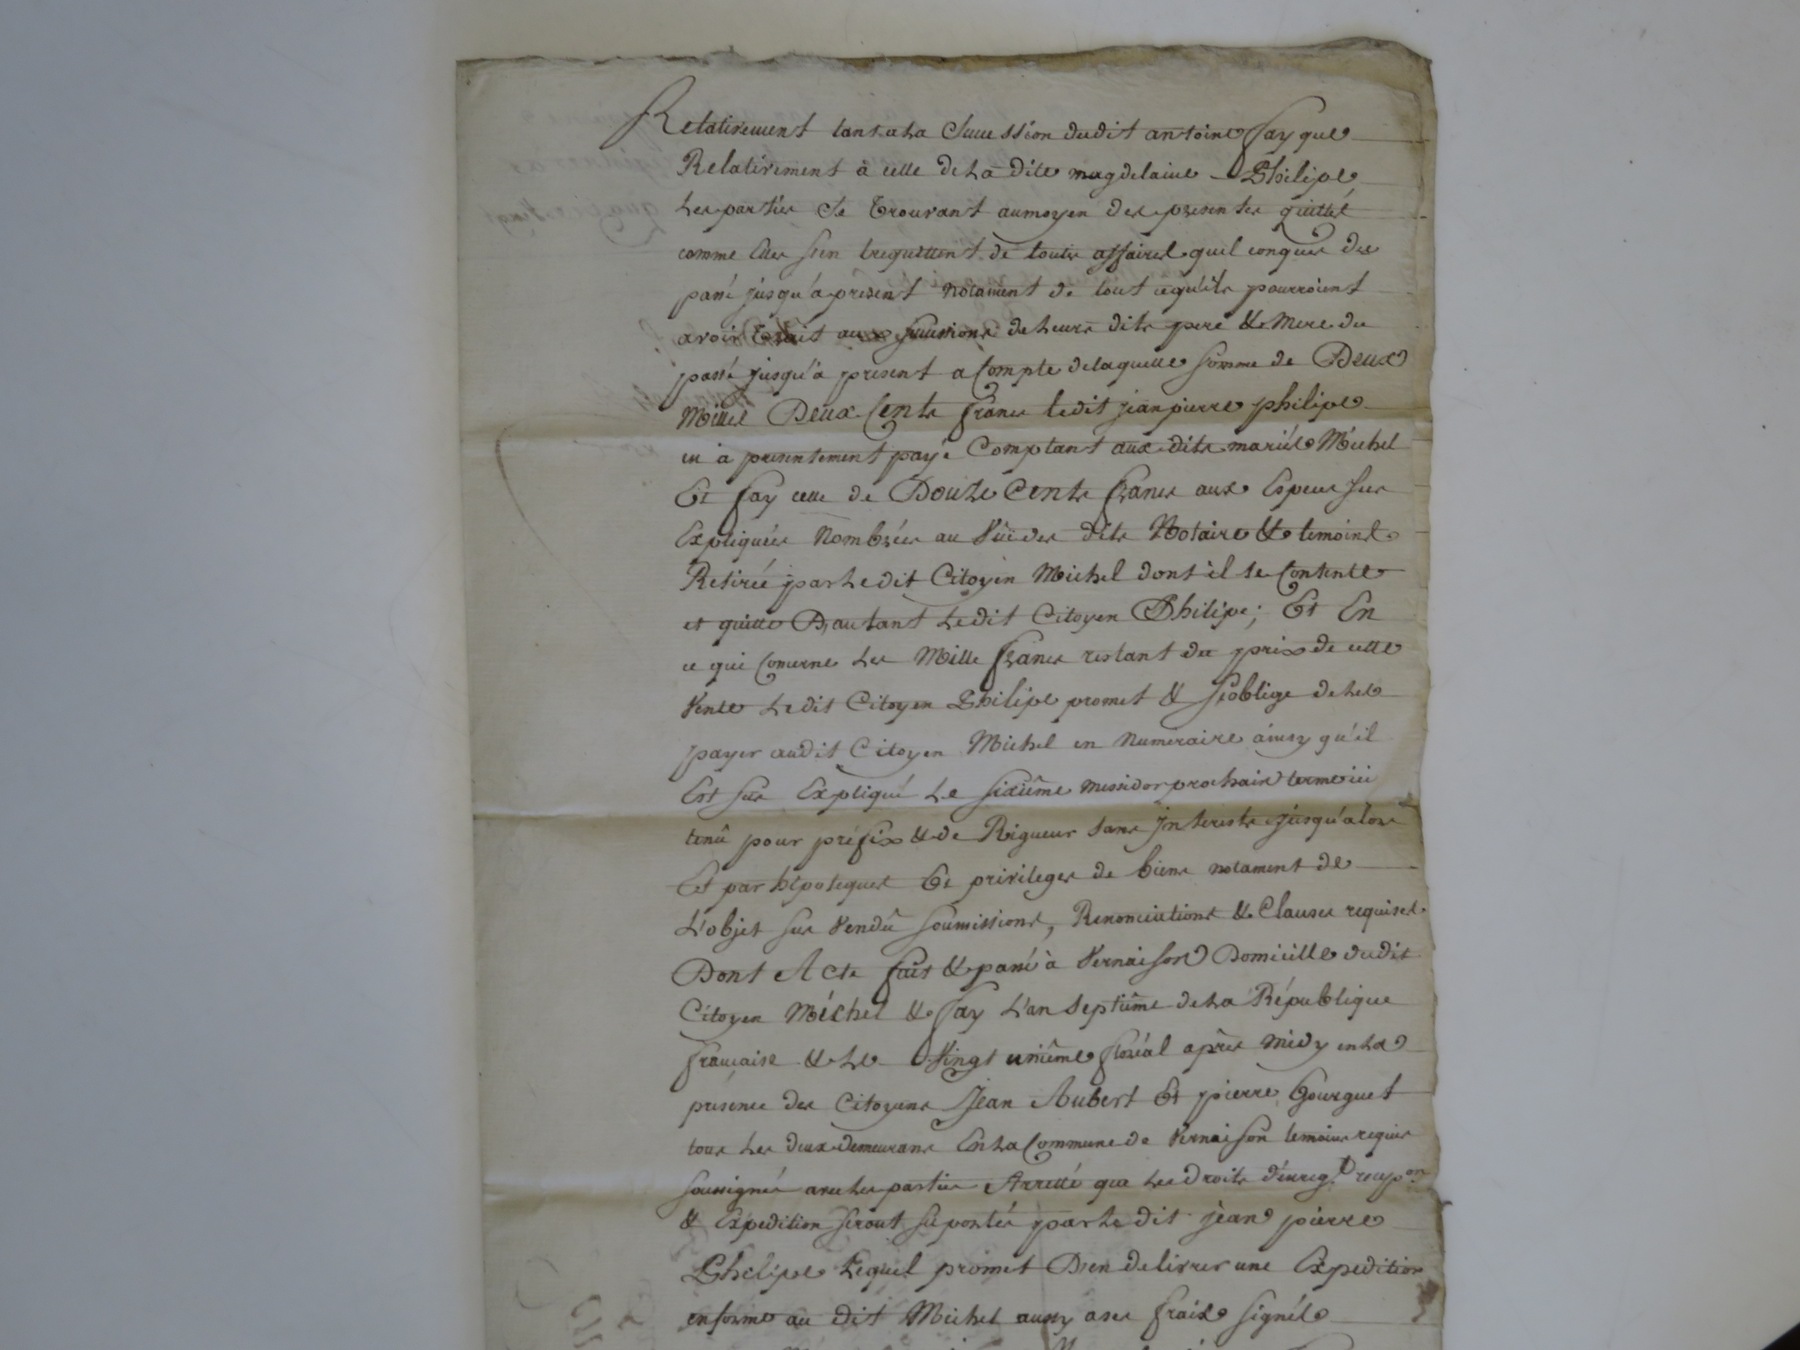 Relativement tant a La Succession dudit antoine fay que
Relativement à celle de La dite magdelaine Philipe
Les parties Se Trouvant au moyen des presentes quittes
comme Elles S'en trequittent de toutes affaires quel conques du
passé jusqu'a présent Notament de tout ce qu'ils pourroient
avoir Trait aux successions de Leurs dits pere & Mere du
passé jusqu'a present a Compte de laquelle Somme de Deux
Milles Deux Cents francs ledit jean pierre philipe
en a presentement payé Comptant aux dits mariés Michel
Et fay celle de Douze Cents francs aux Especes Sus
Expliquées Nombrées au Vû des dits Notaire & temoins
Retirée par Le dit Citoyen Michel dont il se Contente
et quitte D'autant Ledit Citoyen Philipe; Et En
ce qui Concerne Les Mille francs restant du prix de cette
Vente Ledit Citoyen Philipe promet & S'oblige de Les
payer audit Citoyen Michel en Numeraire ainsy qu'il
Est Sus Expliqué Le Sixiême Messidor prochain terme ici
tenû pour préfix & de Rigueur Sans Interests jusqu'alors
Et par hipoteques Et privileges de biens notament de
L'objet Sus Vendû soumissions, Renonciations & Clauses requises
Dont Acte fait & passé à Vernaison Domicille dudit
Citoyen Michel & fay L'an Septiême de La République
française & Le Vingt uniême floréal après midy en La
présence des Citoyens Jean Aubert Et pierre Gourguet
tous Les deux demeurans En La Commune de Vernaison temoins requis
soussignés avec Les parties Arretté que Les Droits d'enreg.t recep.on
& Expedition Seront suportés par Le dit jean pierre
Philipe Lequel promet D'en delivrer une Expedition
en forme au dit Michel aussy a ses fraix Signés